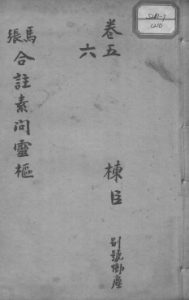 卷五
六
棟臣
別號
馬
張
合註素問靈樞